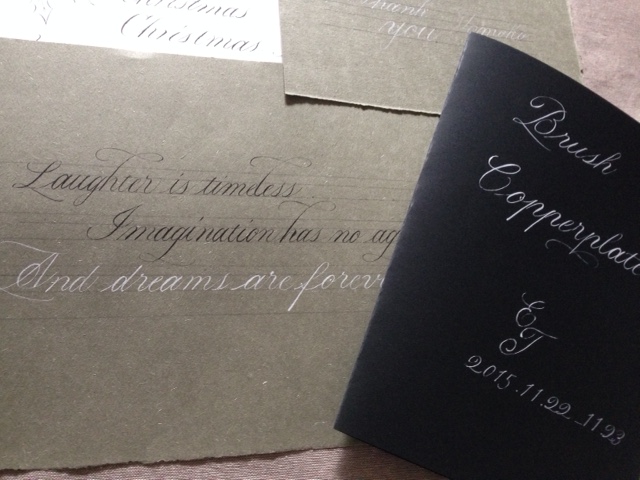 Christmas
Christmas
Thank
you
Laughter is timeless
Imagination has no ag
And dreams are forev
Brush
Copperplate
ET
2015.11.22_1123